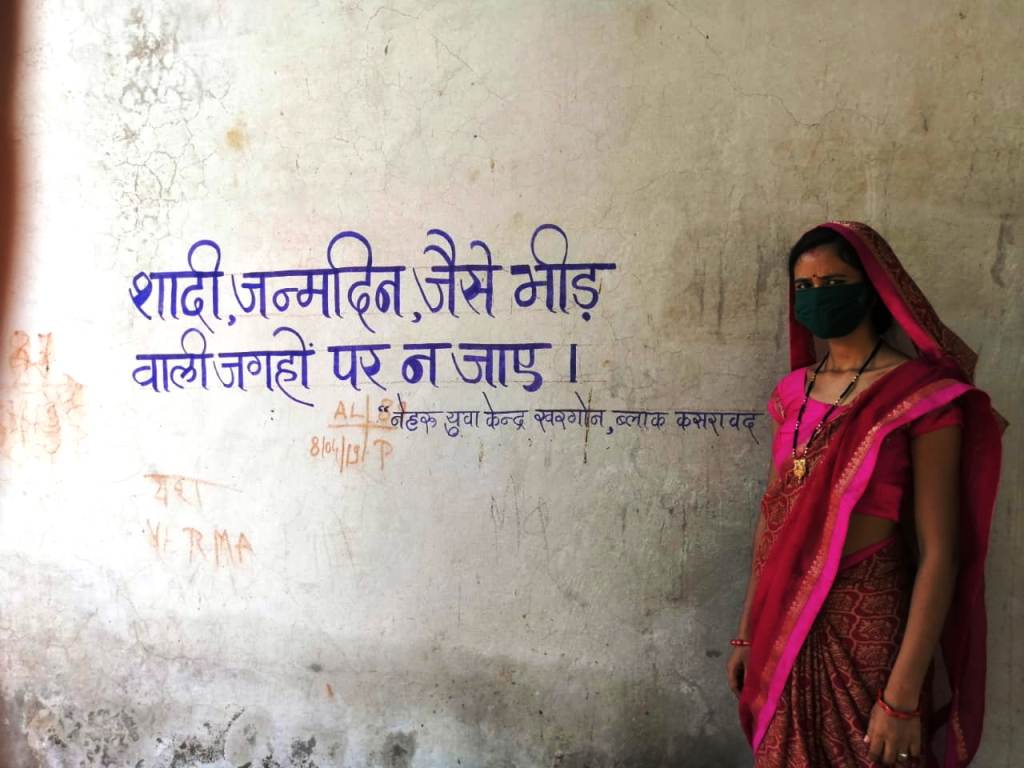 शादी, जन्मदिन, जैसे भीड़
वाली जगहों पर न जाए ।
"नेहरू युवा केन्द्र खरगोन, ब्लाक कसरावद
AL
8/04/19 P
यश
VERMA